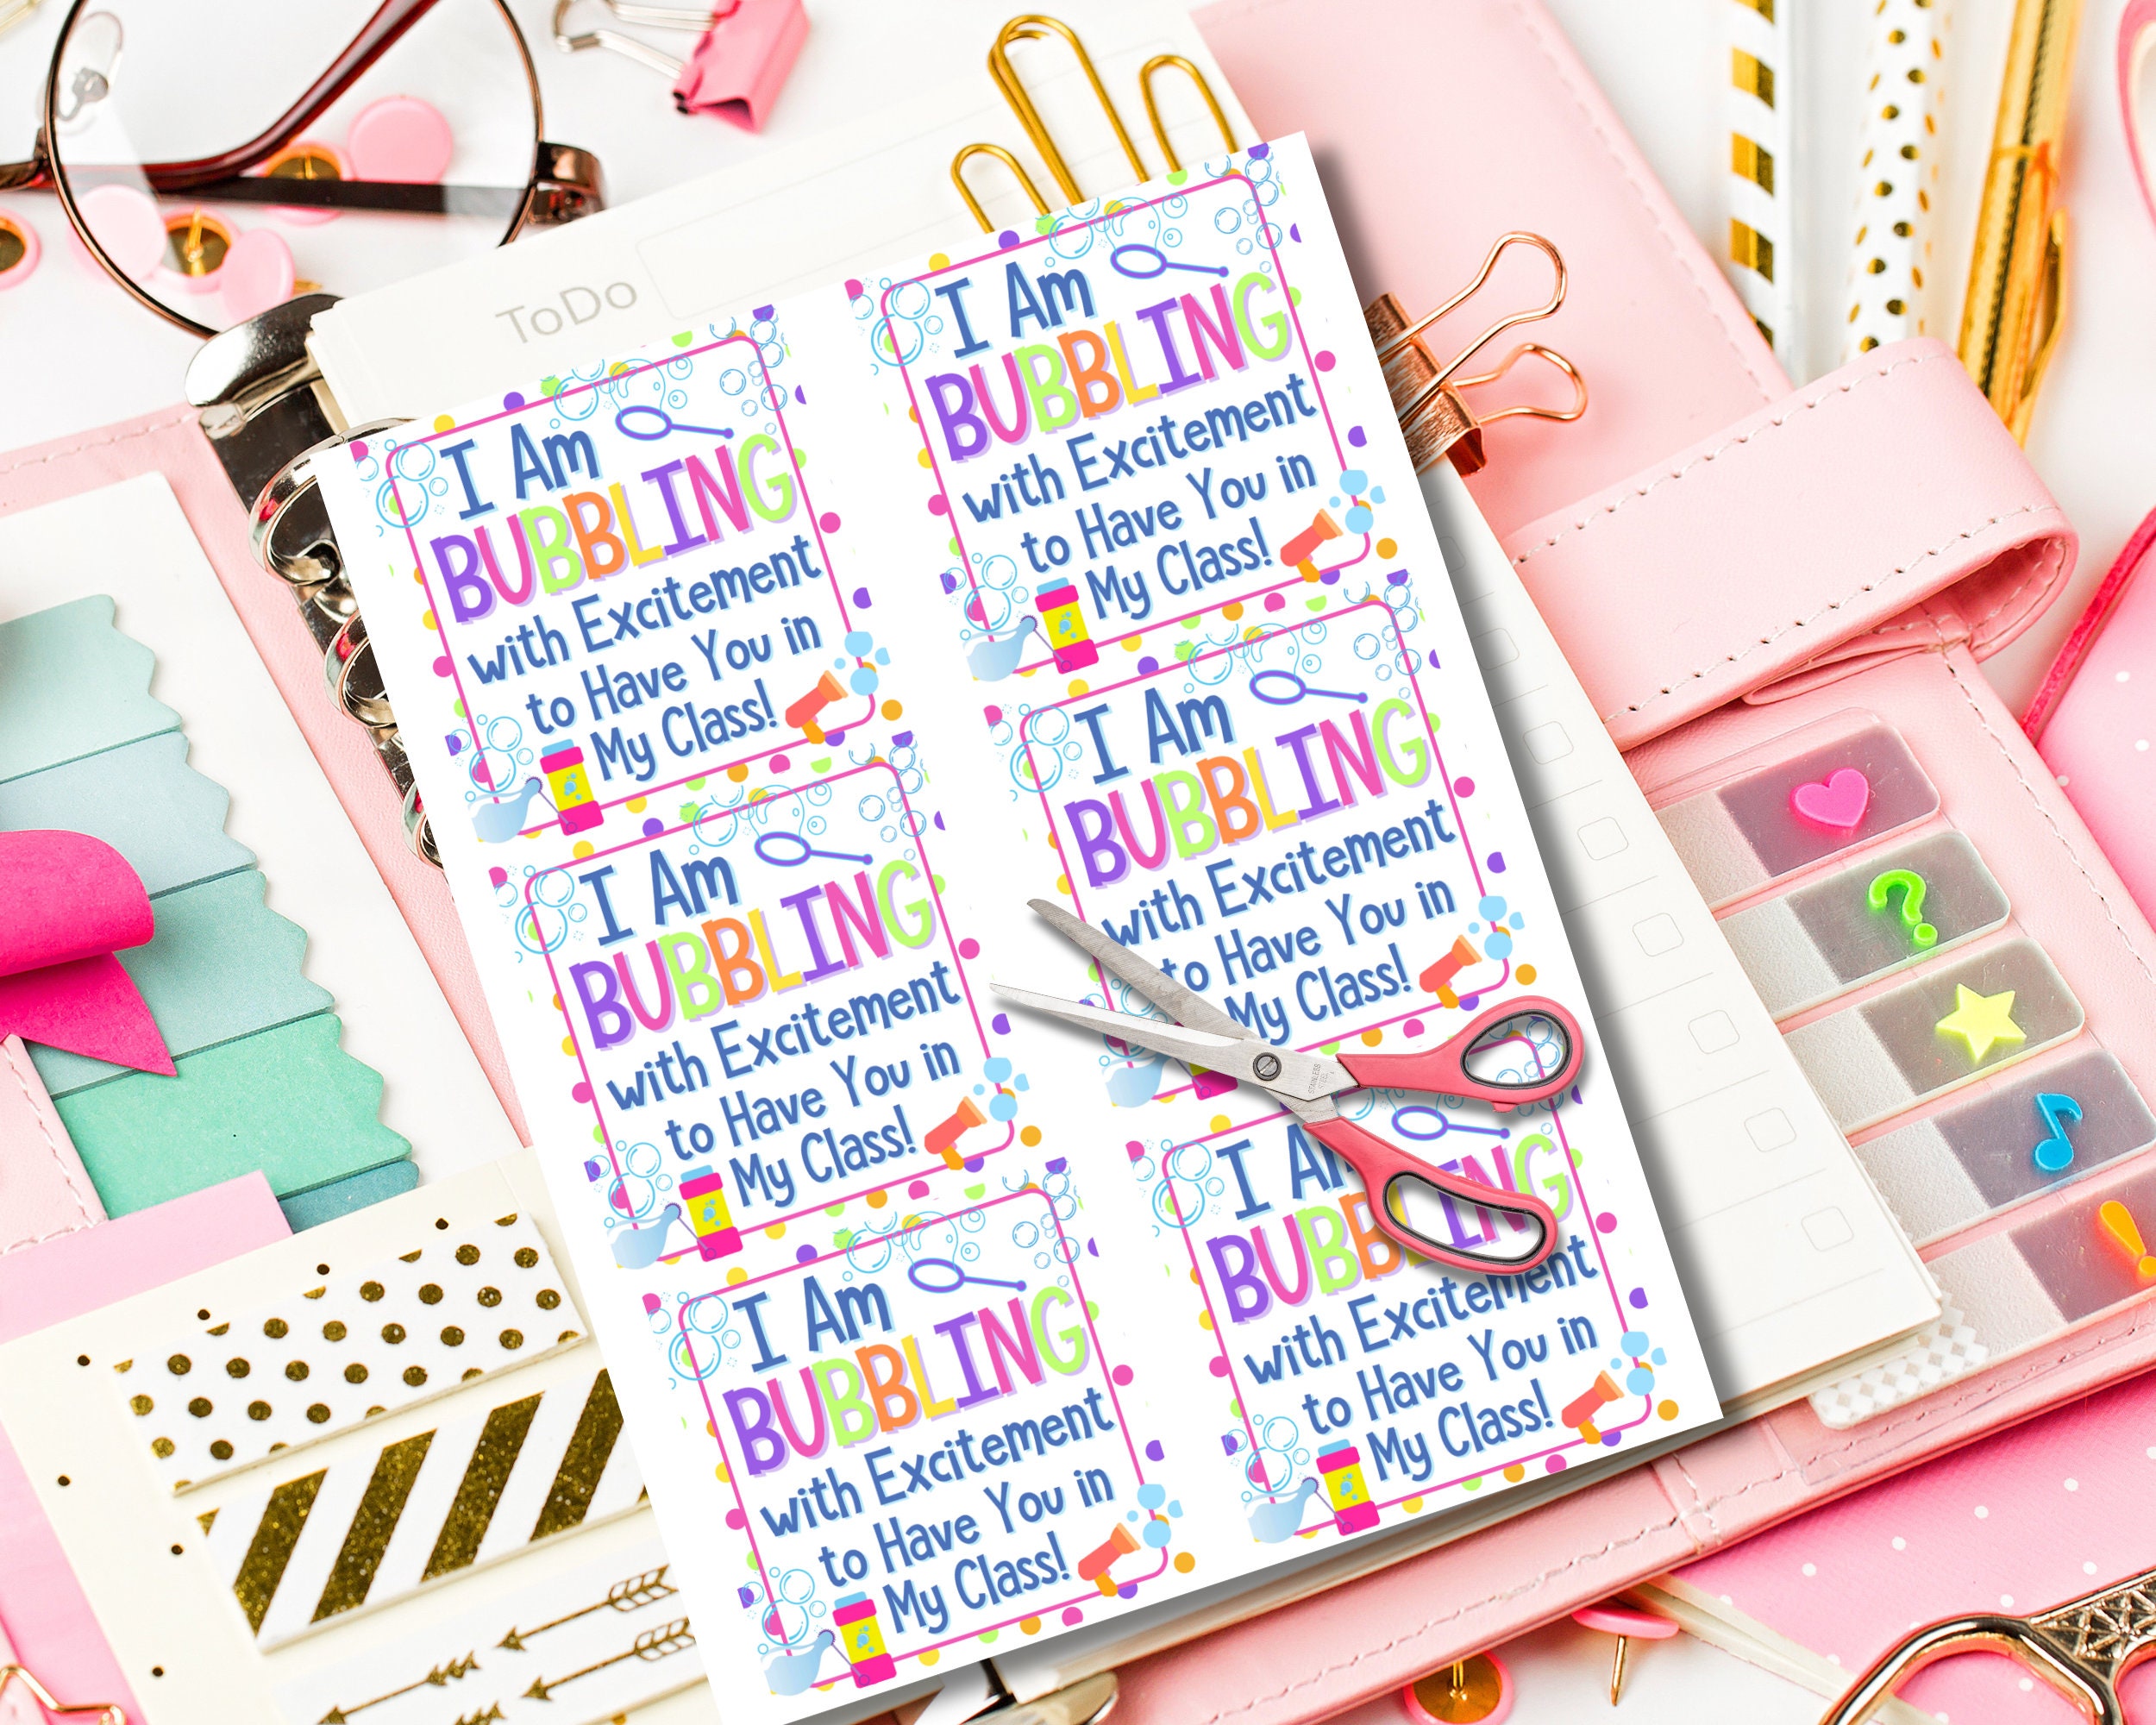 ToDo
I Am
BUBBLING
with Excitement
to Have You in
My Class!
I Am
BUBBLING
with Excitement
to Have You in
My Class!
I Am
BUBBLING
with Excitement
to Have You in
My Class!
I Am
BUBBLING
with Excitement
to Have You in
My Class!
I Am
BUBBLING
with Excitement
to Have You in
My Class!
I Am
BUBBLING
with Excitement
to Have You in
My Class!
STAINLESS